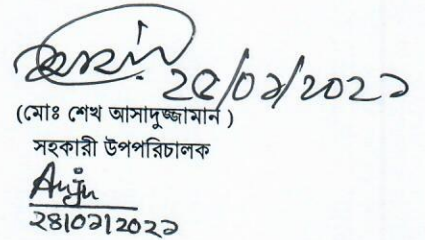 ২৫/০১/২০২১
(মোঃ শেখ আসাদুজ্জামান )
সহকারী উপপরিচালক
Anju
২৪/০১/২০২১